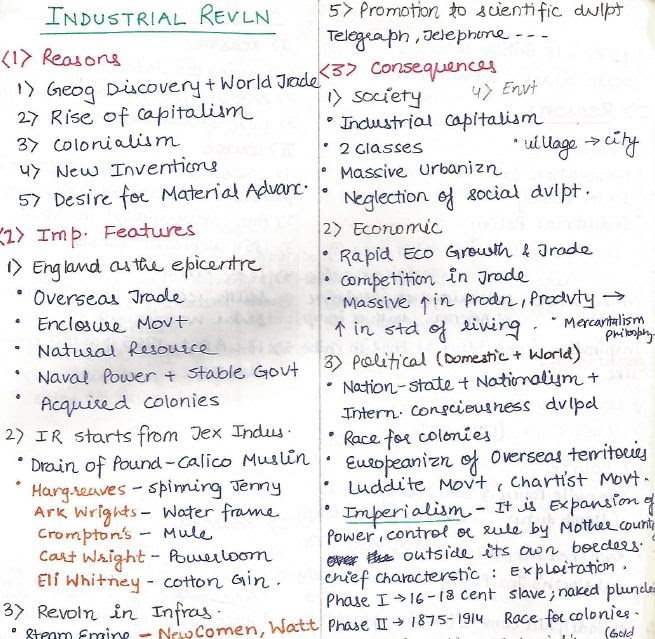 INDUSTRIAL REVLN
<1> Reasons
1> Geog Discovery + World Trade
2> Rise of capitalism
3> colonialism
4> New Inventions
5> Desire for Material Advanc.
<2> Imp. Features
1> England as the epicentre
• Overseas Trade
• Enclosure Movt
• Natural Resource
• Naval Power + Stable Govt
• Acquired colonies
2) IR starts from Tex Indus.
• Drain of Pound - Calico Muslin
• Hargreaves - Spinning Jenny
Ark Wrights - Water frame
Crompton's - Mule
Cart Wright - Powerloom
Eli Whitney - Cotton Gin.
3> Revoln in Infras.
• Steam Engine - NewComen, Watt
5> Promotion to scientific dvlpt
Telegraph, Telephone ---
<3> Consequences
1> Society 4> Envt
• Industrial Capitalism
• 2 classes • village → city
• Massive Urbanizn
• Neglection of social dvlpt.
2> Economic
• Rapid Eco Growth & Trade
• competition in Trade
• Massive ↑ in Prodn, Prodvty →
↑ in std of living. • Mercantalism philosophy
3> Political (Domestic + World)
• Nation-state + Nationalism +
Intern. consciousness dvlpd
• Race for colonies
• Europeanizn of Overseas territories
• Luddite Movt, Chartist Movt.
• Imperialism - It is Expansion of
Power, control or rule by Mother country
outside its own borders.
chief characterstic : Exploitation.
Phase I → 16-18 cent slave; naked plunder
Phase II → 1875-1914 Race for colonies.
(Gold